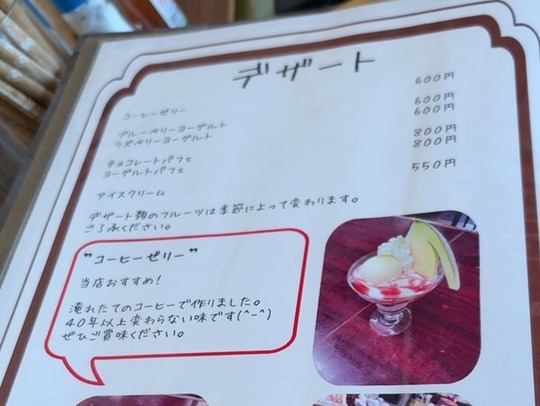 デザート
コーヒーゼリー 600円
ブルーベリーヨーグルト 600円
ラズベリーヨーグルト 600円
チョコレートパフェ 800円
ヨーグルトパフェ 800円
アイスクリーム 550円
デザート類のフルーツは季節によって変わります。
ご了承ください。
"コーヒーゼリー"
当店おすすめ!
淹れたてのコーヒーで作りました。
40年以上変わらない味です(^-^)
ぜひご賞味ください。